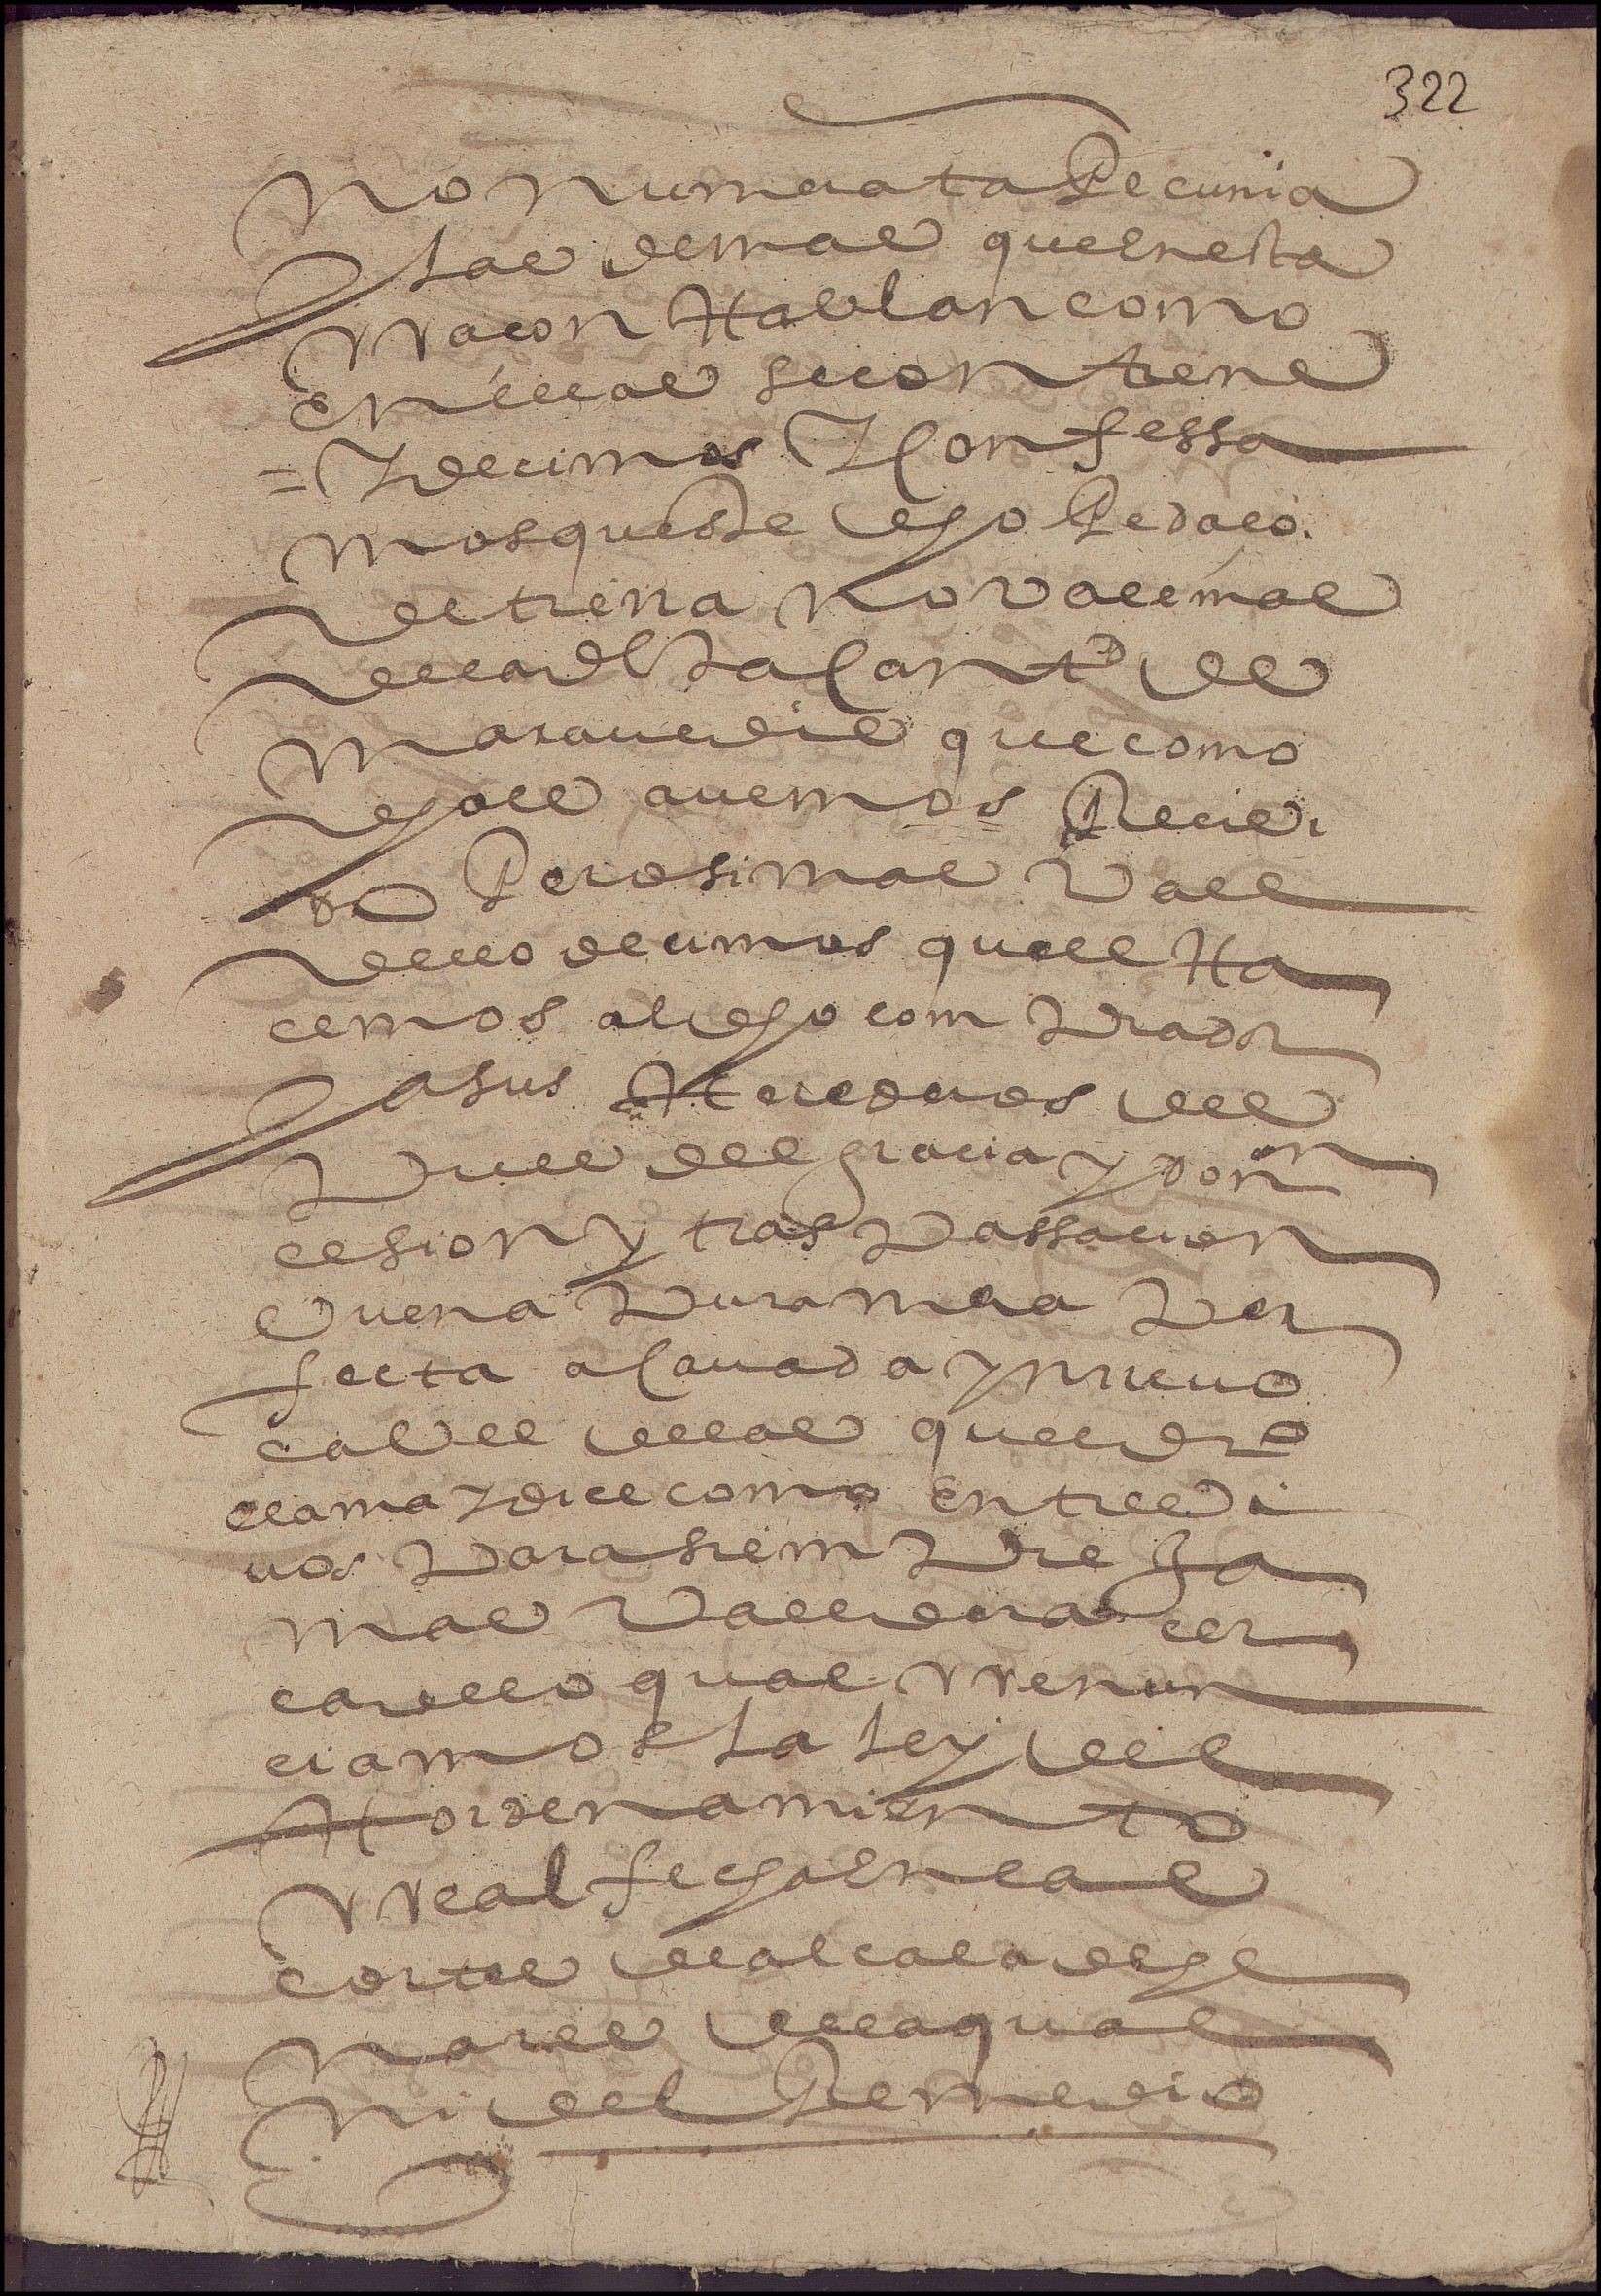 322
no numerata Pecunia
y las demas que en esta
rraçon Hablan como
en ellas se contiene
= y decimos y confessa
mos que este dho Pedaço
de tierra no vale mas
de la dha cantd de
maravedis que como
dho es avemos Recivi
do Pero si mas vale
dello decimos que le Ha
cemos al dho comprador
y a sus Herederos de
pues del gracia y don
cesion y traspassacion
buena pura mera per
fecta acavada ynrrevo
cable de las que el dro
llama y dice como entre vi
vos para siempre ja
mas valedera cer
ca de lo qual rrenun
ciamos la ley del
Hordenamiento
rreal fecha en las
cortes de alcala de he
nares de la qual
ni del Remedio